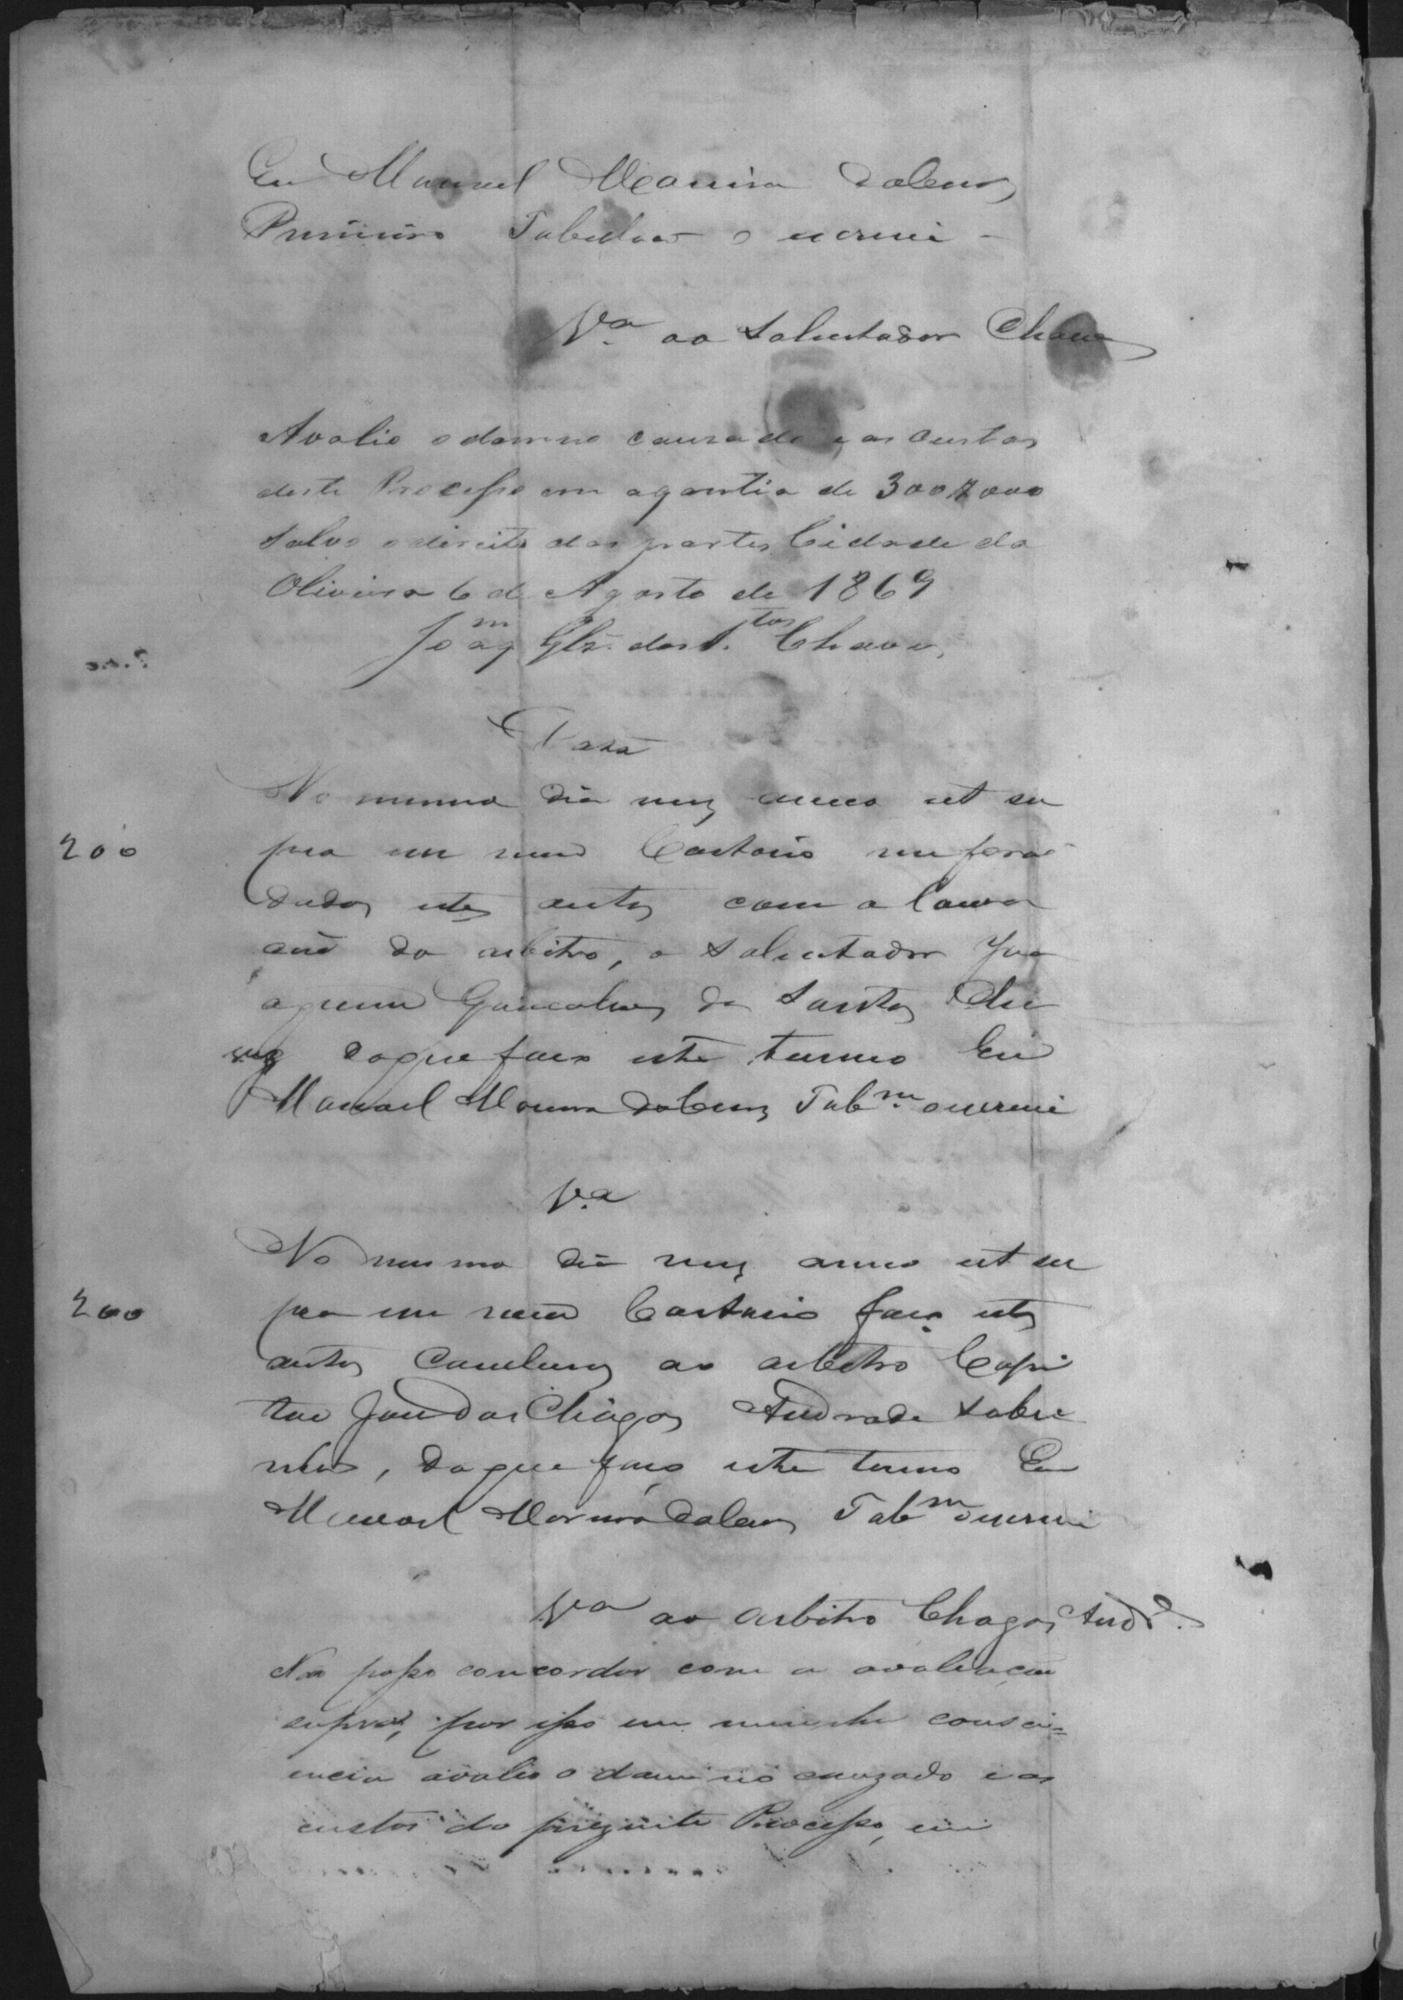 Eu Manoel
Primeiro Tabeliam o escrevi -
V.ª ao Solicitador Chaves
Avalio o damno causado, e as custas
deste Processo em a quantia de 300$000
salvo o direito das partes Cidade da
Oliveira 6 de Agosto de 1869
Joaqm Glz. dos S.tos Chaves
Data
No mesmo dia mez anno ut su
200
pra em meu Cartorio me forão
dados estes autos com a
do arbitro, o Solicitador Joa
quim Gonçalves dos Santos Cha
ves do que faço este termo Eu
Manoel Tabm. o escrevi
V.ª
No mesmo dia mez anno ut su
200
pra em meu Cartorio faço estes
autos Concluzos ao arbitro Capi
tão das Chagas Andrade Sobri
nho, do que faço este termo Eu
Manoel Tabm o escrevi
V.ª ao arbitro Chagas Andr.e
Não posso concordar com a avaliação
supra, por isso em minha consci=
encia avalio o damno cauzado e as
custas do prezente Processo, em